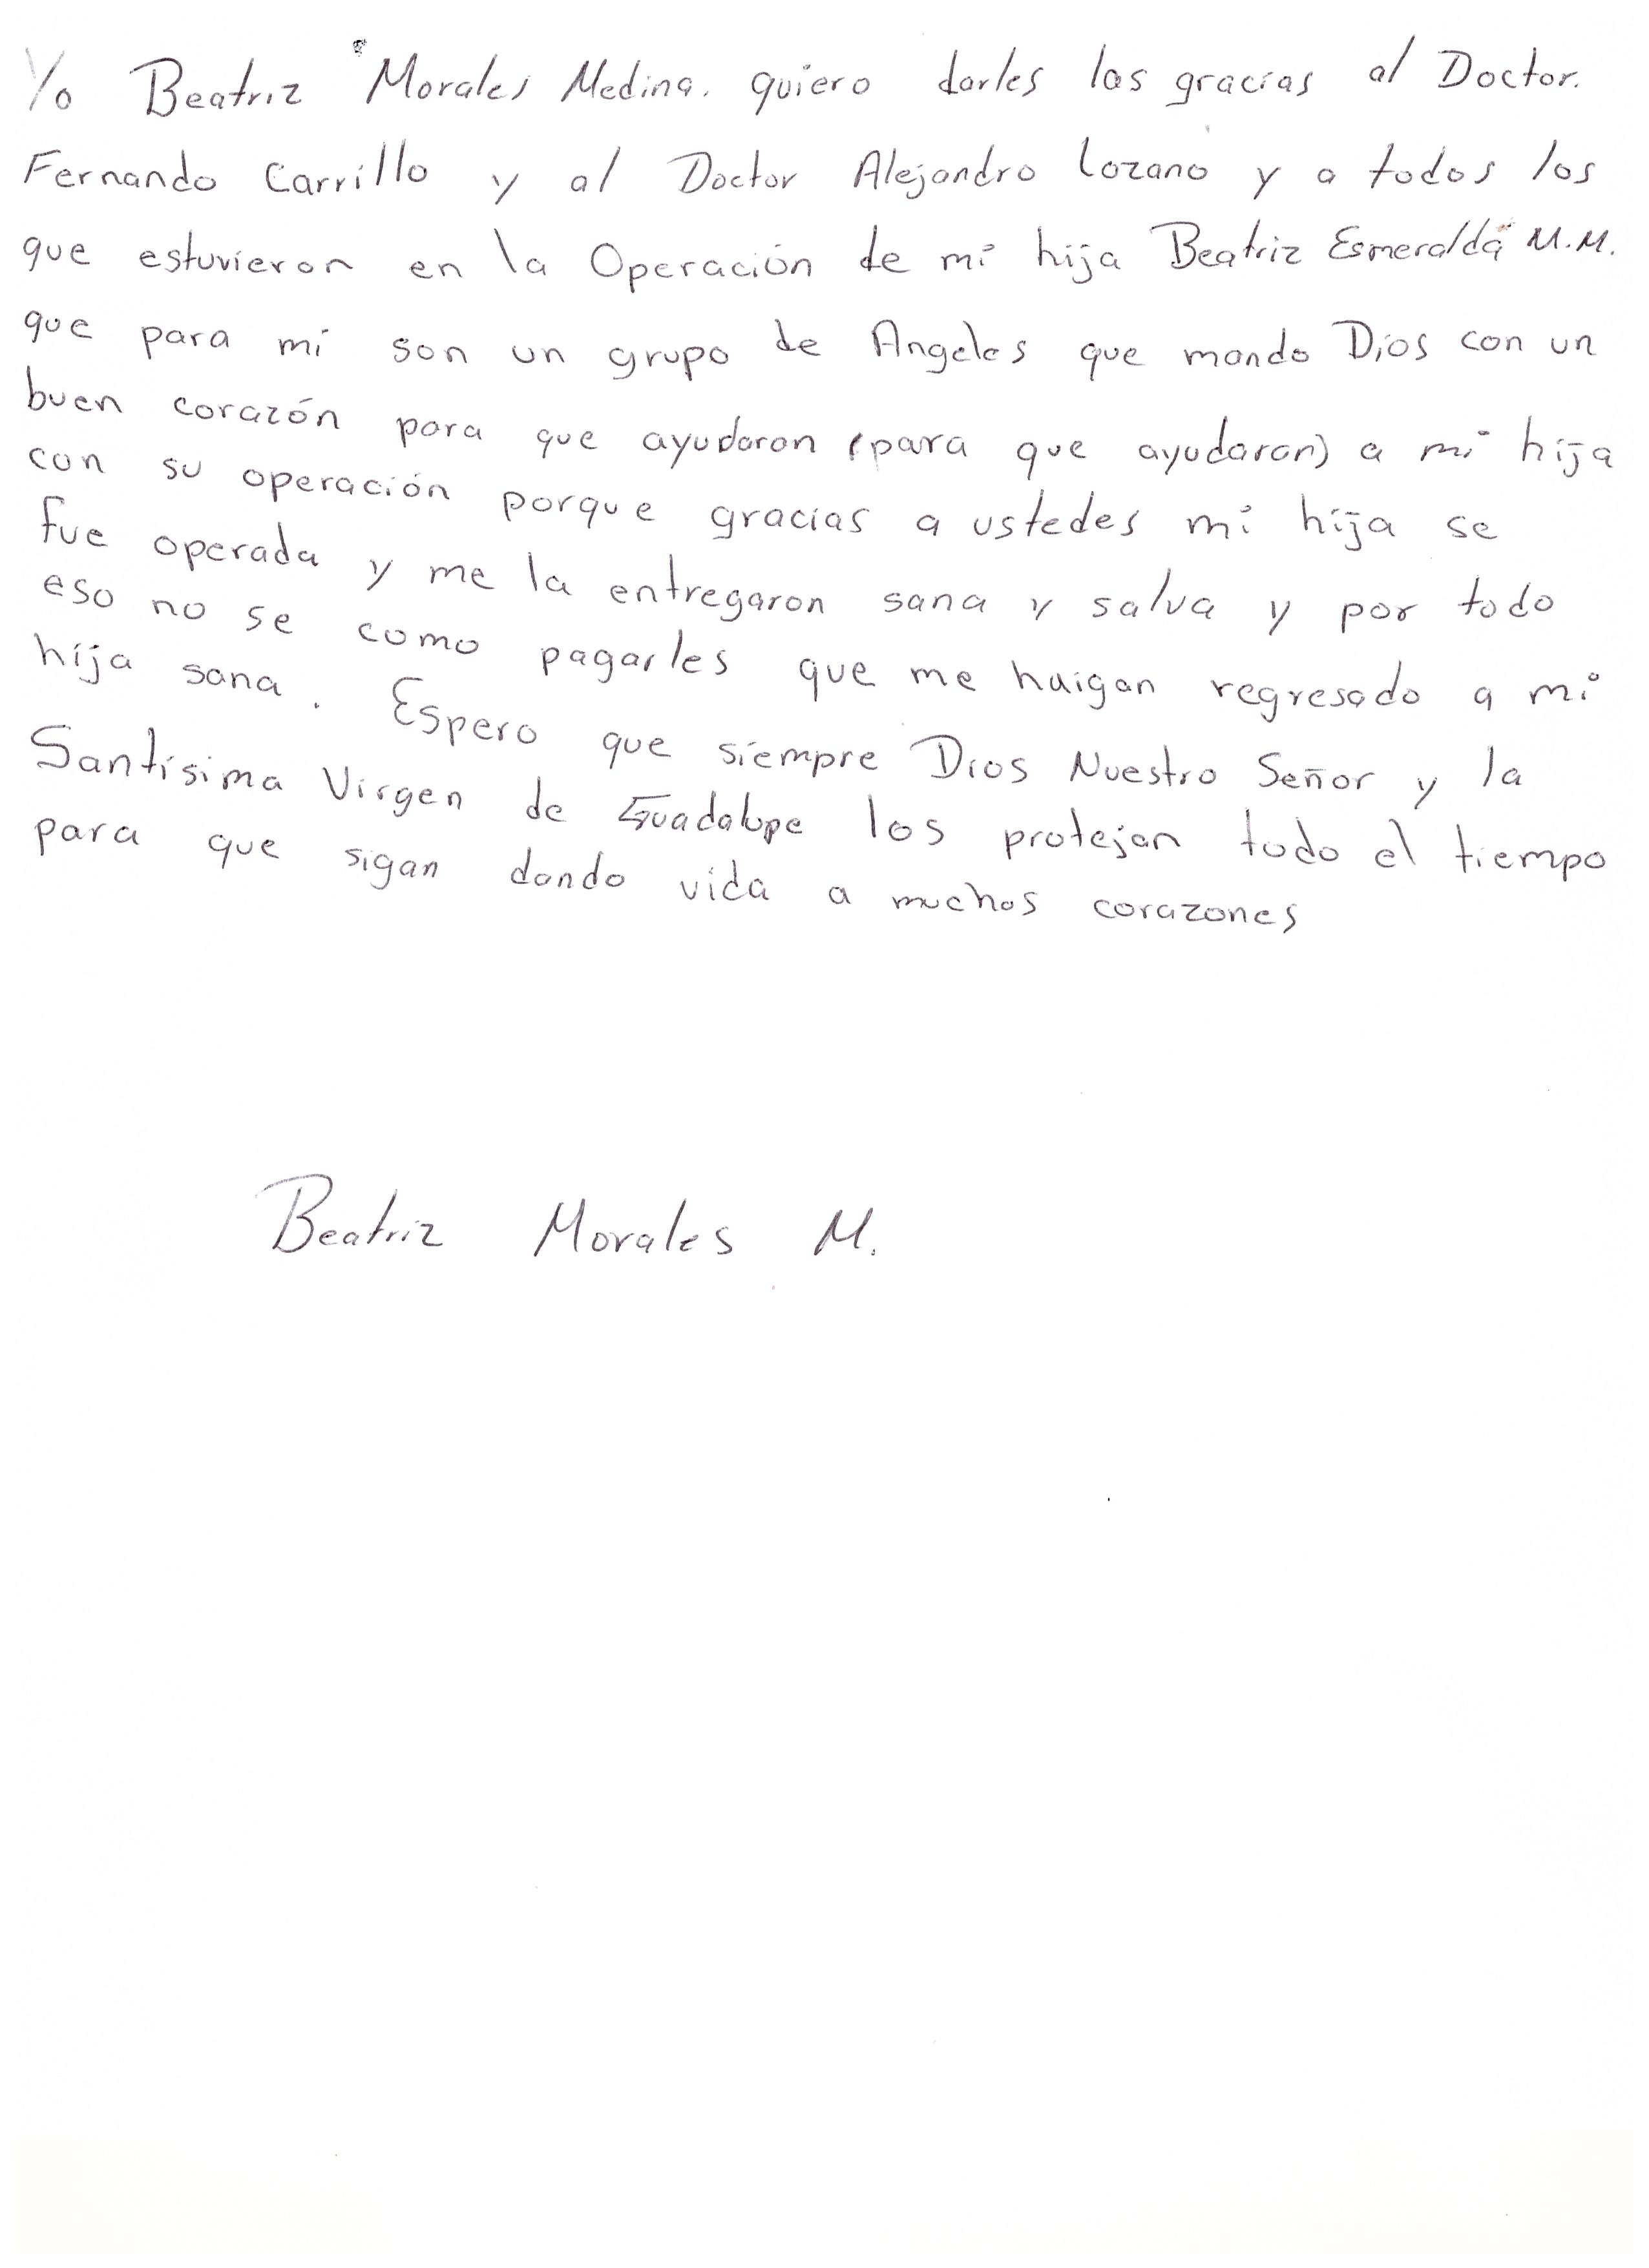 Yo Beatriz Morales Medina. quiero darles las gracias al Doctor.
Fernando Carrillo y al Doctor Alejandro Lozano y a todos los
que estuvieron en la Operación de mi hija Beatriz Esmeralda M.M.
que para mi son un grupo de Angeles que mando Dios con un
buen corazón para que ayudaran (para que ayudaran) a mi hija
con su operación porque gracias a ustedes mi hija se
fue operada y me la entregaron sana y salva y por todo
eso no se como pagarles que me haigan regresado a mi
hija sana. Espero que siempre Dios Nuestro Señor y la
Santísima Virgen de Guadalupe los protejan todo el tiempo
para que sigan dando vida a muchos corazones
Beatriz Morales M.